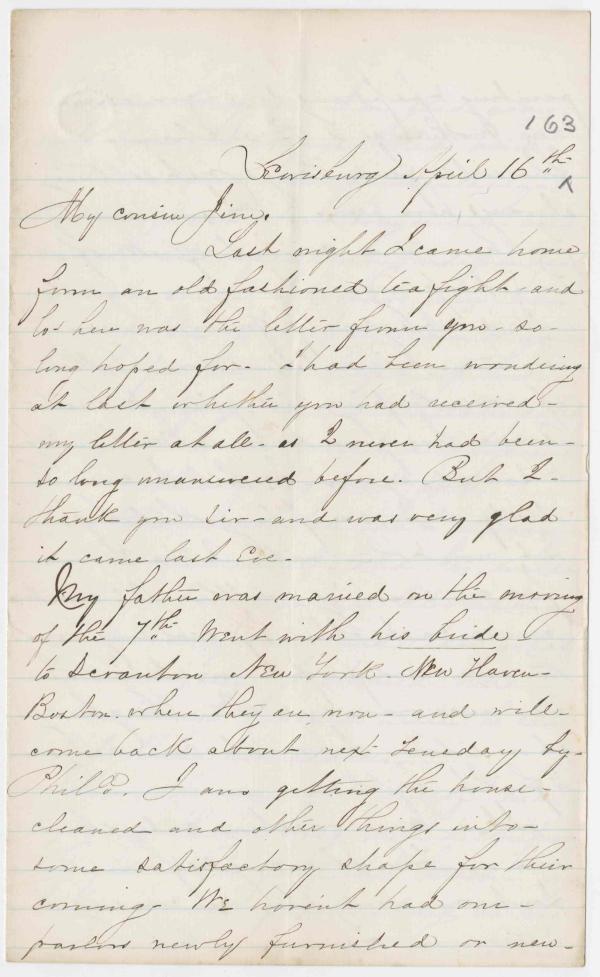 163
Lewisburg April 16th
My cousin Jim.
Last night I came home
from an old fashioned tea fight - and
lo - here was the letter from you - so -
long hoped for - I had been wondering
at last whether you had received -
my letter at all - as I never had been -
so long unanswered before. But I -
thank you sir - and was very glad
it came last Eve -
My father was married on the morning
of the 7th Went with his bride -
to Scranton New York. New Haven -
Boston. where they are now - and will -
come back about next Tuesday by -
Phila. I am getting the house -
cleaned and other things into -
some satisfactory shape for their
coming - We havent had our -
parlors newly furnished or new -